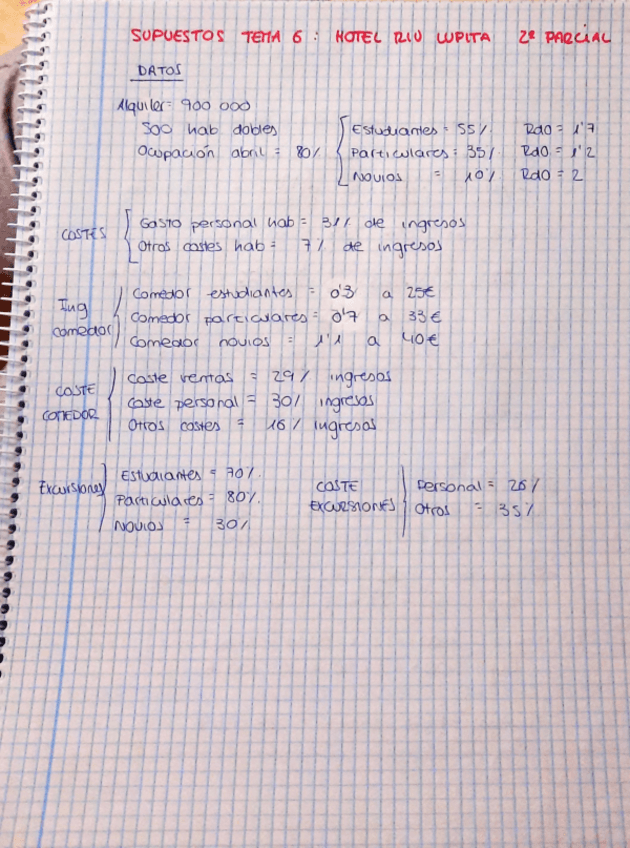 SUPUESTOS TEMA 6 : HOTEL RIU LUPITA 2º PARCIAL
DATOS
Alquiler = 900 000
500 hab dobles
Ocupación abril = 80%
Estudiantes = 55% Rdo = 1'7
Particulares = 35% Rdo = 1'2
Novios = 10% Rdo = 2
COSTES
Gasto personal hab = 31% de ingresos
Otros costes hab = 7% de ingresos
Ing comedor
Comedor estudiantes = 0'3 a 25€
Comedor particulares = 0'7 a 33€
Comedor novios = 1'1 a 40€
COSTE COMEDOR
Coste ventas = 29% ingresos
Coste personal = 30% ingresos
Otros costes = 16% ingresos
Excursiones
Estudiantes = 70%
Particulares = 80%
Novios = 30%
COSTE EXCURSIONES
Personal = 26%
Otros = 35%